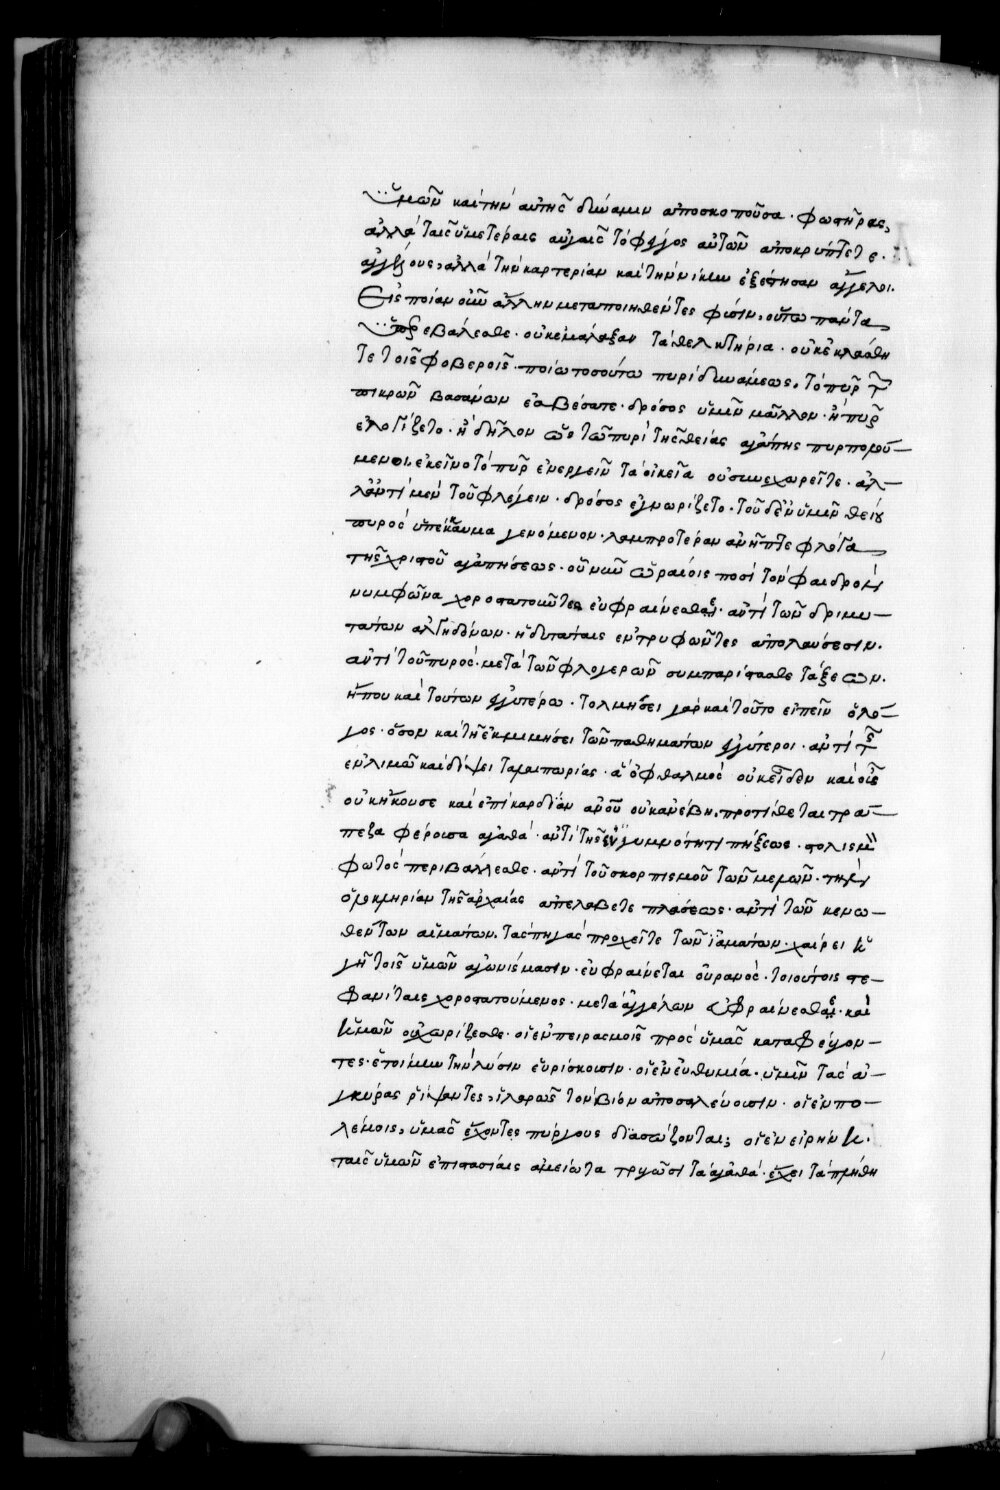 ὑμῶν καὶ τὴν αὐτῆς δύναμιν ἀποσκοποῦσα· φωστῆρας,
ἀλλὰ ταῖς ὑμετέραις αὐγαῖς τὸ φέγγος αὐτῶν ἀποκρύπτετε·
ἀγγέλους, ἀλλὰ τὴν καρτερίαν καὶ τὴν νίκην ἐξέστησαν ἄγγελοι.
Εἰς ποίαν οὖν ἄλλην μεταποιηθέντες φύσιν, οὕτω πάντα
ὑπερεβάλεσθε· οὐκ ἐμάλαξαν τὰ θελκτήρια· οὐκ ἐκλάσθη
τε τοῖς φοβεροῖς· ποίω τοσούτω πυρὶ δυνάμεως, τὸ πῦρ τῶν
πικρῶν βασάνων ἐσβέσατε· δρόσος ὑμῖν μᾶλλον ἢ πῦρ
ἐλογίζετο· ἢ δῆλον ὡς τῶ πυρὶ τῆς θείας ἀγάπης πυρπολού-
μενοι, ἐκεῖνο τὸ πῦρ ἐνεργεῖν τὰ οἰκεῖα οὐ συνεχωρεῖτε· ἀλ-
λ' ἀντὶ μὲν τοῦ φλέγειν· δρόσος ἐγνωρίζετο· τοῦ δ' ἐν ὑμῖν θείου
πυρὸς ὑπέκκαυμα γενόμενον· λαμπροτέραν ἀνῆπτε φλόγα
τῆς χριστοῦ ἀγαπήσεως· οὗ νῦν ὡραίοις ποσὶ τὸν φαιδρὸν
νυμφῶνα χοροστατοῦντες εὐφραίνεσθαι· ἀντὶ τῶν δριμυ-
τάτων ἀλγηδόνων· ἡδυτάταις ἐντρυφῶντες ἀπολαύσεσιν.
ἀντὶ τοῦ πυρὸς· μετὰ τῶν φλογερῶν συμπαρίστασθε τάξεων.
ἤπου καὶ τούτων ἐγγυτέρω· τολμήσει γὰρ καὶ τοῦτο εἰπεῖν ὁ λό-
γος· ὅσον καὶ τῆ ἐκμιμήσει τῶν παθημάτων ἐγγύτεροι· ἀντὶ τῆς
ἐν λιμῶ καὶ δίψει ταλαιπωρίας· ἃ ὀφθαλμὸς οὐκ εἶδεν καὶ οὖς
οὐκ ἤκουσε καὶ ἐπὶ καρδίαν ἀνοῦ οὐκ ἀνέβη, προτίθεται τρά-
πεζα φέρουσα ἀγαθά· ἀντὶ τῆς ἐν γυμνότητι πήξεως· στολισμὸν
φωτὸς περιβάλλεσθε· ἀντὶ τοῦ σκορπισμοῦ τῶν μελῶν· τὴν
ὁλοκληρίαν τῆς ἀρχαίας ἀπελάβετε πλάσεως· ἀντὶ τῶν κενω-
θέντων αἱμάτων, τὰς πηγὰς προχεῖτε τῶν ἰαμάτων· χαίρει ἡ
γῆ τοῖς ὑμῶν ἀγωνίσμασιν· εὐφραίνεται οὐρανὸς· τοιούτοις στε-
φανίταις χοροστατούμενος· μετὰ ἀγγέλων εὐφραίνεσθαι· καὶ
ἡμῶν οὐ χωρίζεσθε· οἱ ἐν πειρασμοῖς πρὸς ὑμᾶς καταφεύγον-
τες· ἑτοίμην τὴν λύσιν εὑρίσκουσιν· οἱ ἐν εὐθυμία· ὑμῖν τὰς ἀ-
γκύρας ῥίψαντες, ἱλαρῶς τὸν βίον ἀποσαλεύουσιν· οἱ ἐν πο-
λέμοις, ὑμᾶς ἔχοντες πύργους διασώζονται; οἱ ἐν εἰρήνη.
ταῖς ὑμῶν ἐπιστασίαις ἀμείωτα τρυγῶσι τὰ ἀγαθά· ἔχει τὰ πλήθη